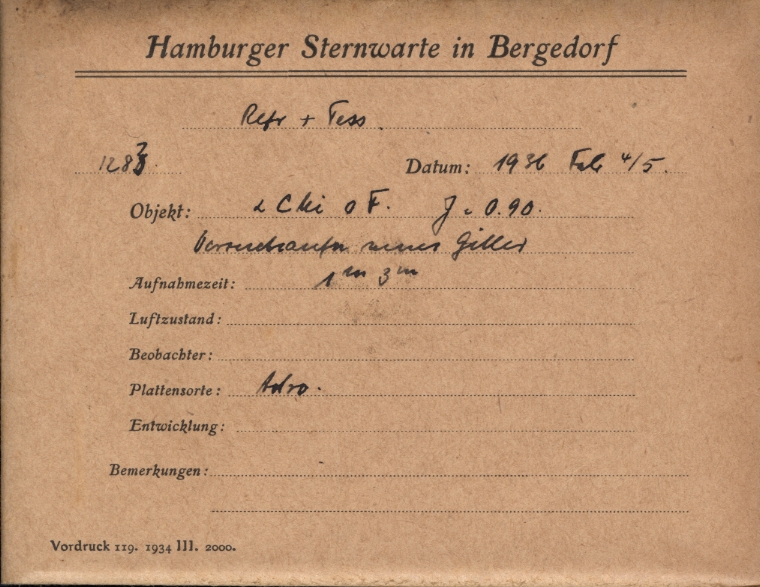 Hamburger Sternwarte in Bergedorf
Refr + Tess.
1283 Datum: 1936 Feb 4/5.
Objekt: α CMi o F. J = 0.90.
neues Gitter
Aufnahmezeit: 1m 3m
Luftzustand:
Beobachter:
Plattensorte: Astro.
Entwicklung:
Bemerkungen:
Vordruck 119. 1934 III. 2000.